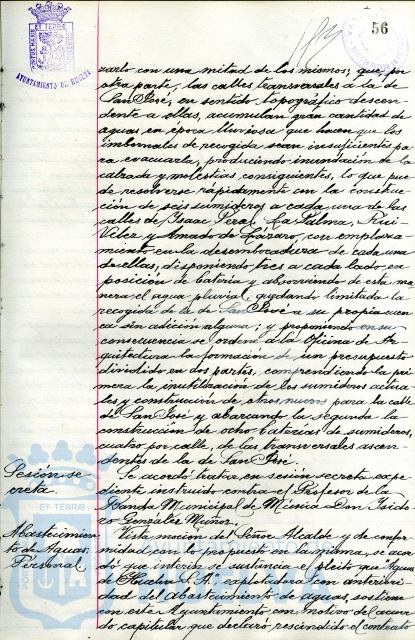 56
AYUNTAMIENTO DE HUELVA
zarlo con una mitad de los mismos; que, por
otra parte, las calles transversales a la de
San José, en sentido topográfico descen-
dente a ellas, acumulan gran cantidad de
aguas en época lluviosa que hacen que los
imbornales de recogida sean insuficientes pa-
ra evacuarla, produciendo inundación de la
calzada y molestias consiguientes, lo que pue-
de resolverse rápidamente con la construc-
ción de seis sumideros a cada una de las
calles de Isaac Peral, La Palma, Rui-
Velez y Amado de Lázaro, con emplaza-
miento en la desembocadura de cada una
de ellas, disponiendo tres a cada lado en
posición de batería y absorviendo de esta ma-
nera el agua pluvial, quedando limitada la
recogida de la de San José a su propia cuen-
ca sin adición alguna; y proponiendo en su
consecuencia se ordene a la Oficina de Ar-
quitectura la formación de un presupuesto
dividido en dos partes, comprendiendo la pri-
mera la inutilización de los sumideros actua-
les y construcción de otros nuevos para la calle
de San José y abarcando la segunda la
construcción de ocho baterías de sumideros,
cuatro por calle, de las transversales ascen-
dentes de la de San José.
Sesión se-
creta.
Se acordó tratar en sesión secreta expe-
diente instruido contra el Profesor de la
Banda Municipal de Música Don Isido-
ro González Muñoz.
Abastecimien-
to de Aguas.
Personal
Vista moción del Señor Alcalde y de confor-
midad con lo propuesto en la misma, se acor-
dó que interin se sustancia el pleito que Aguas
de Huelva S. A. explotadora con anteriori-
dad del abastecimiento de aguas, sostiene
con este Ayuntamiento con motivo del acuer-
do capitular que declaró rescindido el contrato